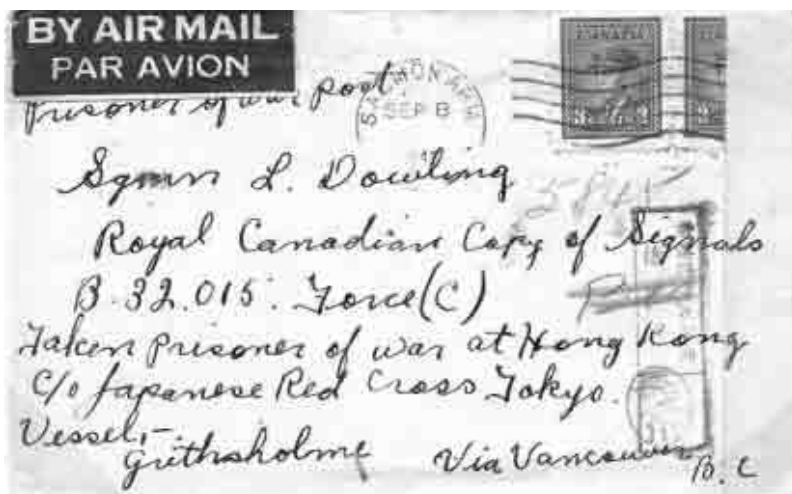 BY AIR MAIL
PAR AVION
Prisoner of war post
SALMON ARM
SEP 8
CANADA
Sgmn L. Dowling
Royal Canadian Copy of Signals
B.32.015. Force (C)
Taken Prisoner of war at Hong Kong
C/o Japanese Red Cross Tokyo.
Vessel,-
Grithsholme Via Vancouver B.C